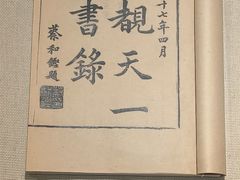 十七年四月
覩天一
書錄
蔡和鏗題